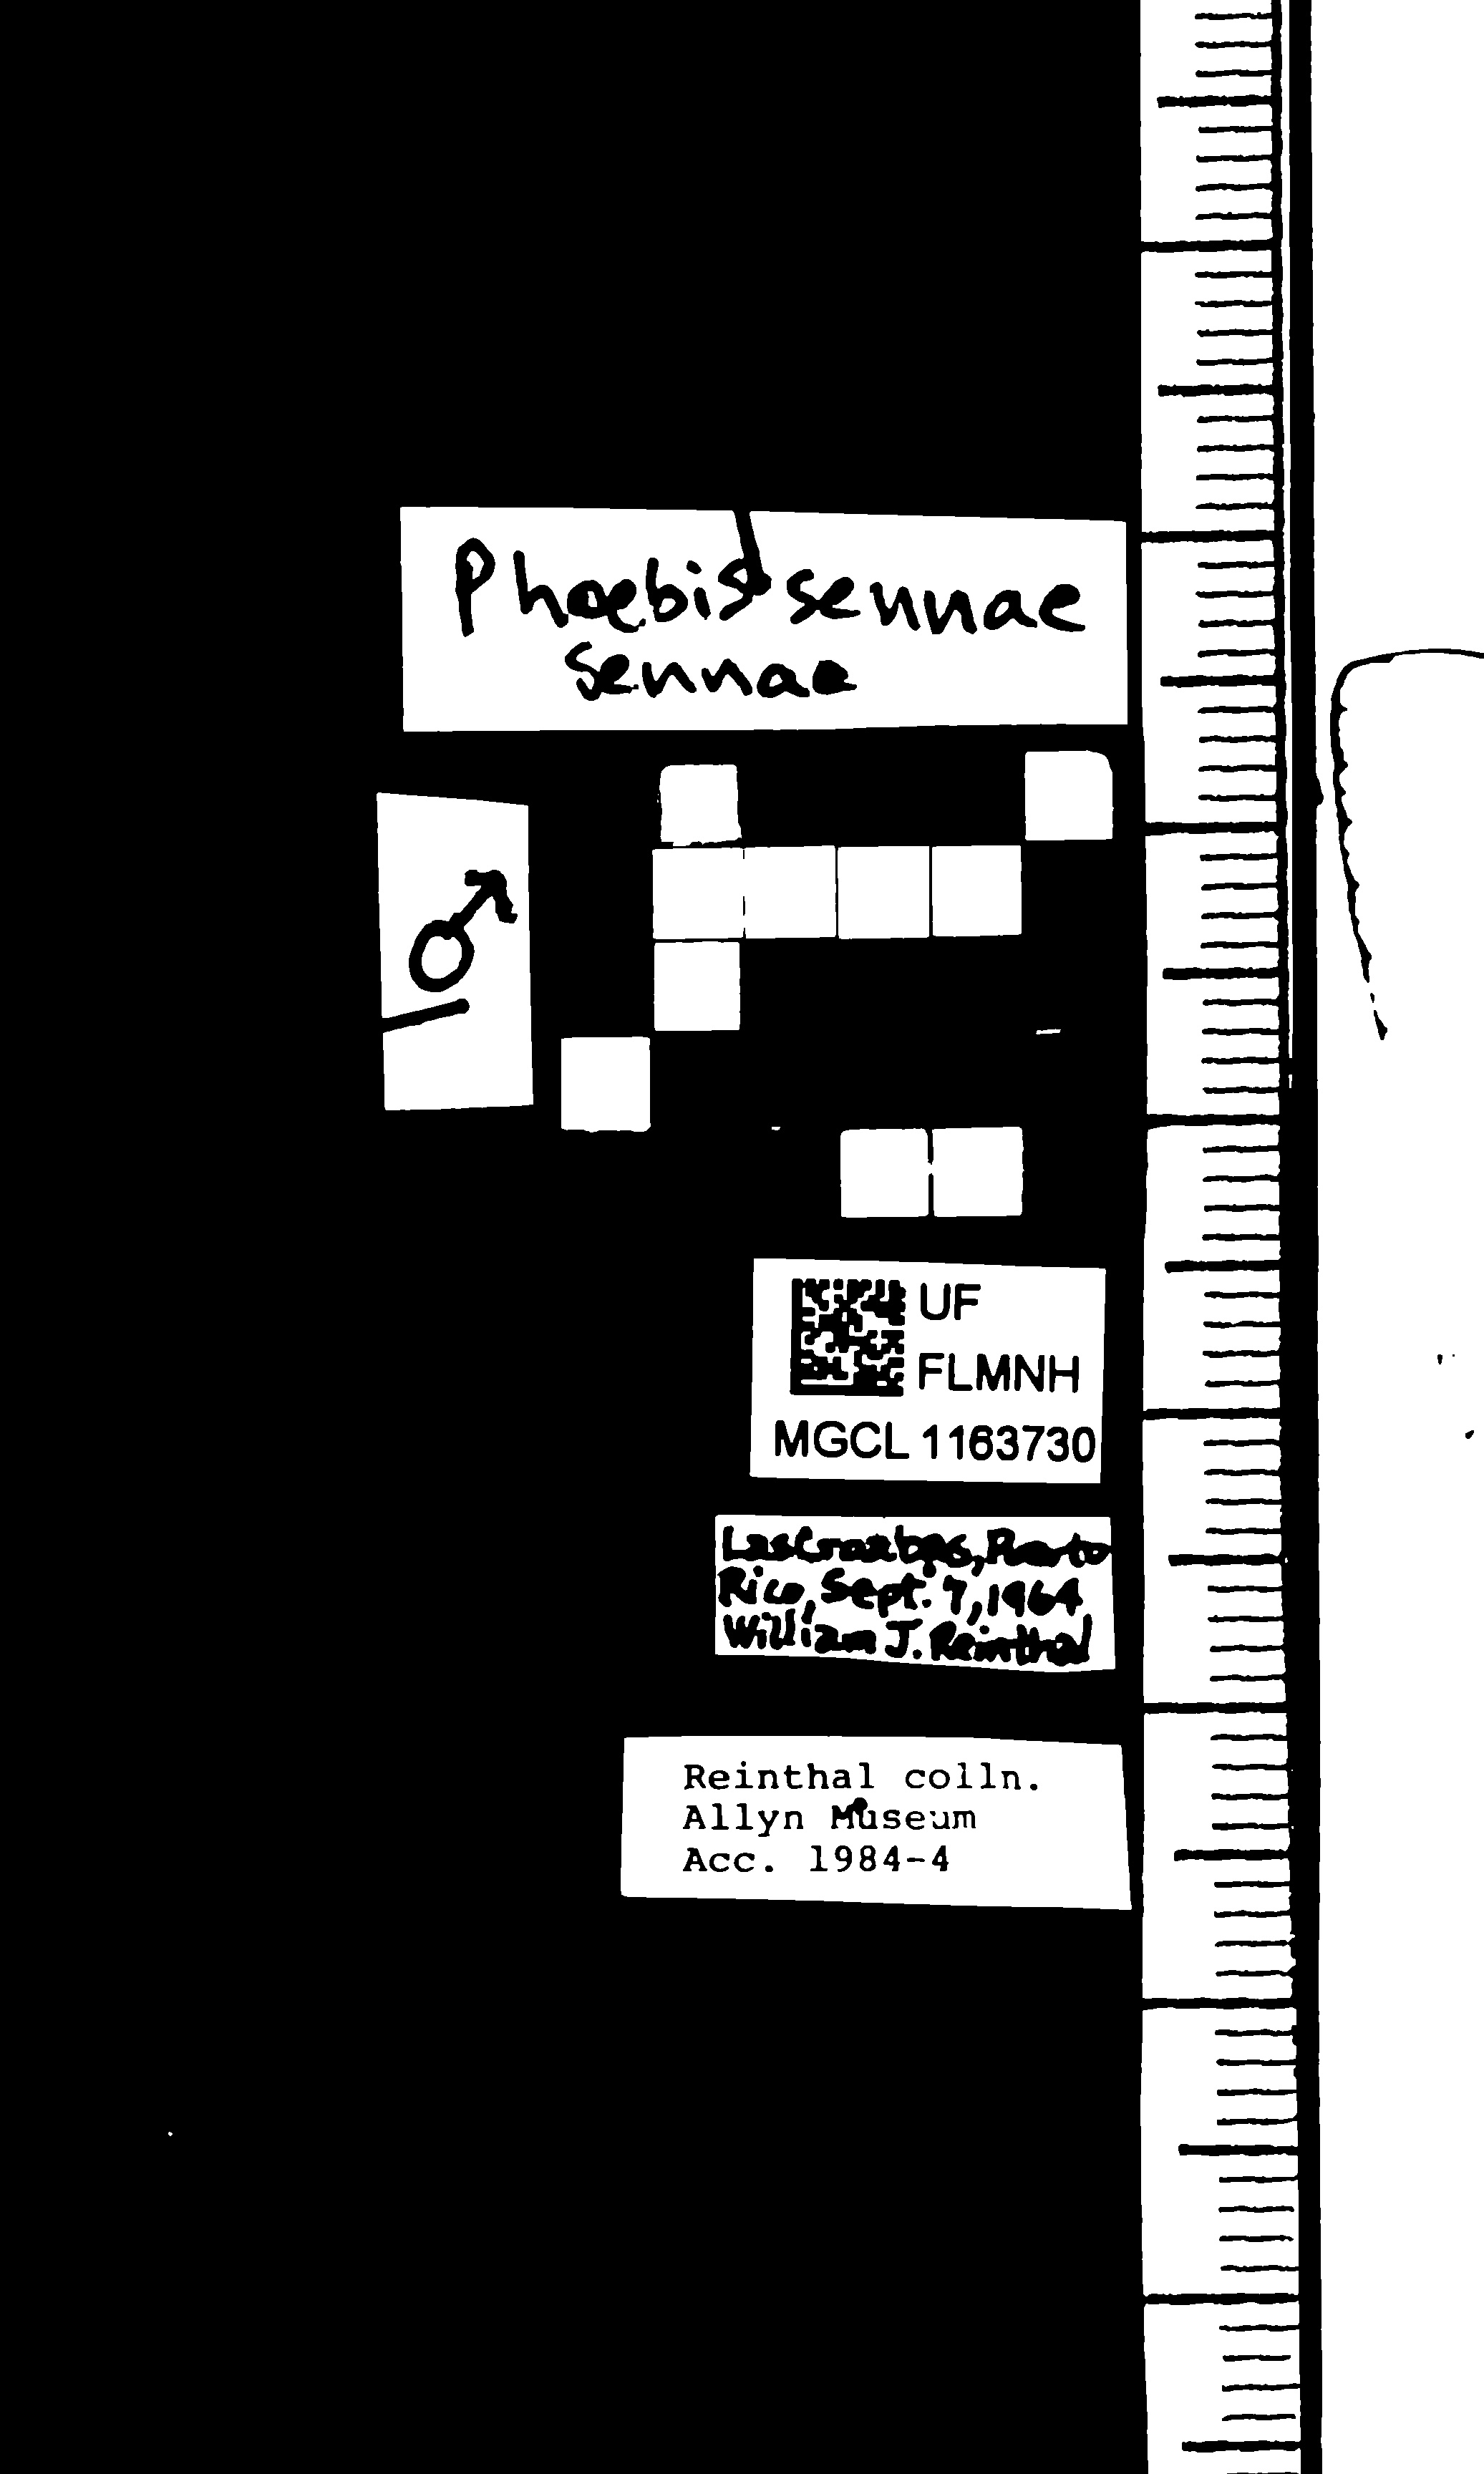 Phoebis sennae
sennae
♂
UF
FLMNH
MGCL 1163730
Las Croabas, Puerto
Rico, Sept. 7, 1964
William J. Reinthal
Reinthal colln.
Allyn Museum
Acc. 1984-4